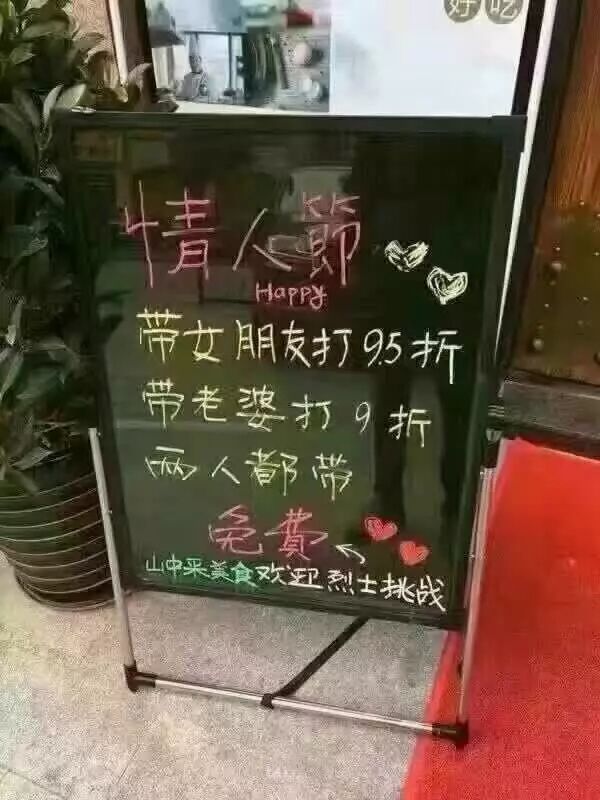 好吃
情人節
Happy
带女朋友打9.5折
带老婆打9折
两人都带
免費
山中采美食欢迎烈士挑战